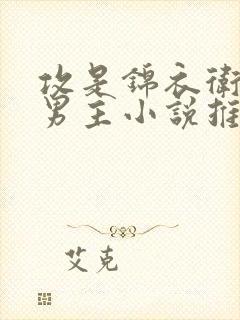 攻是錦衣衛
男主小說推
艾克